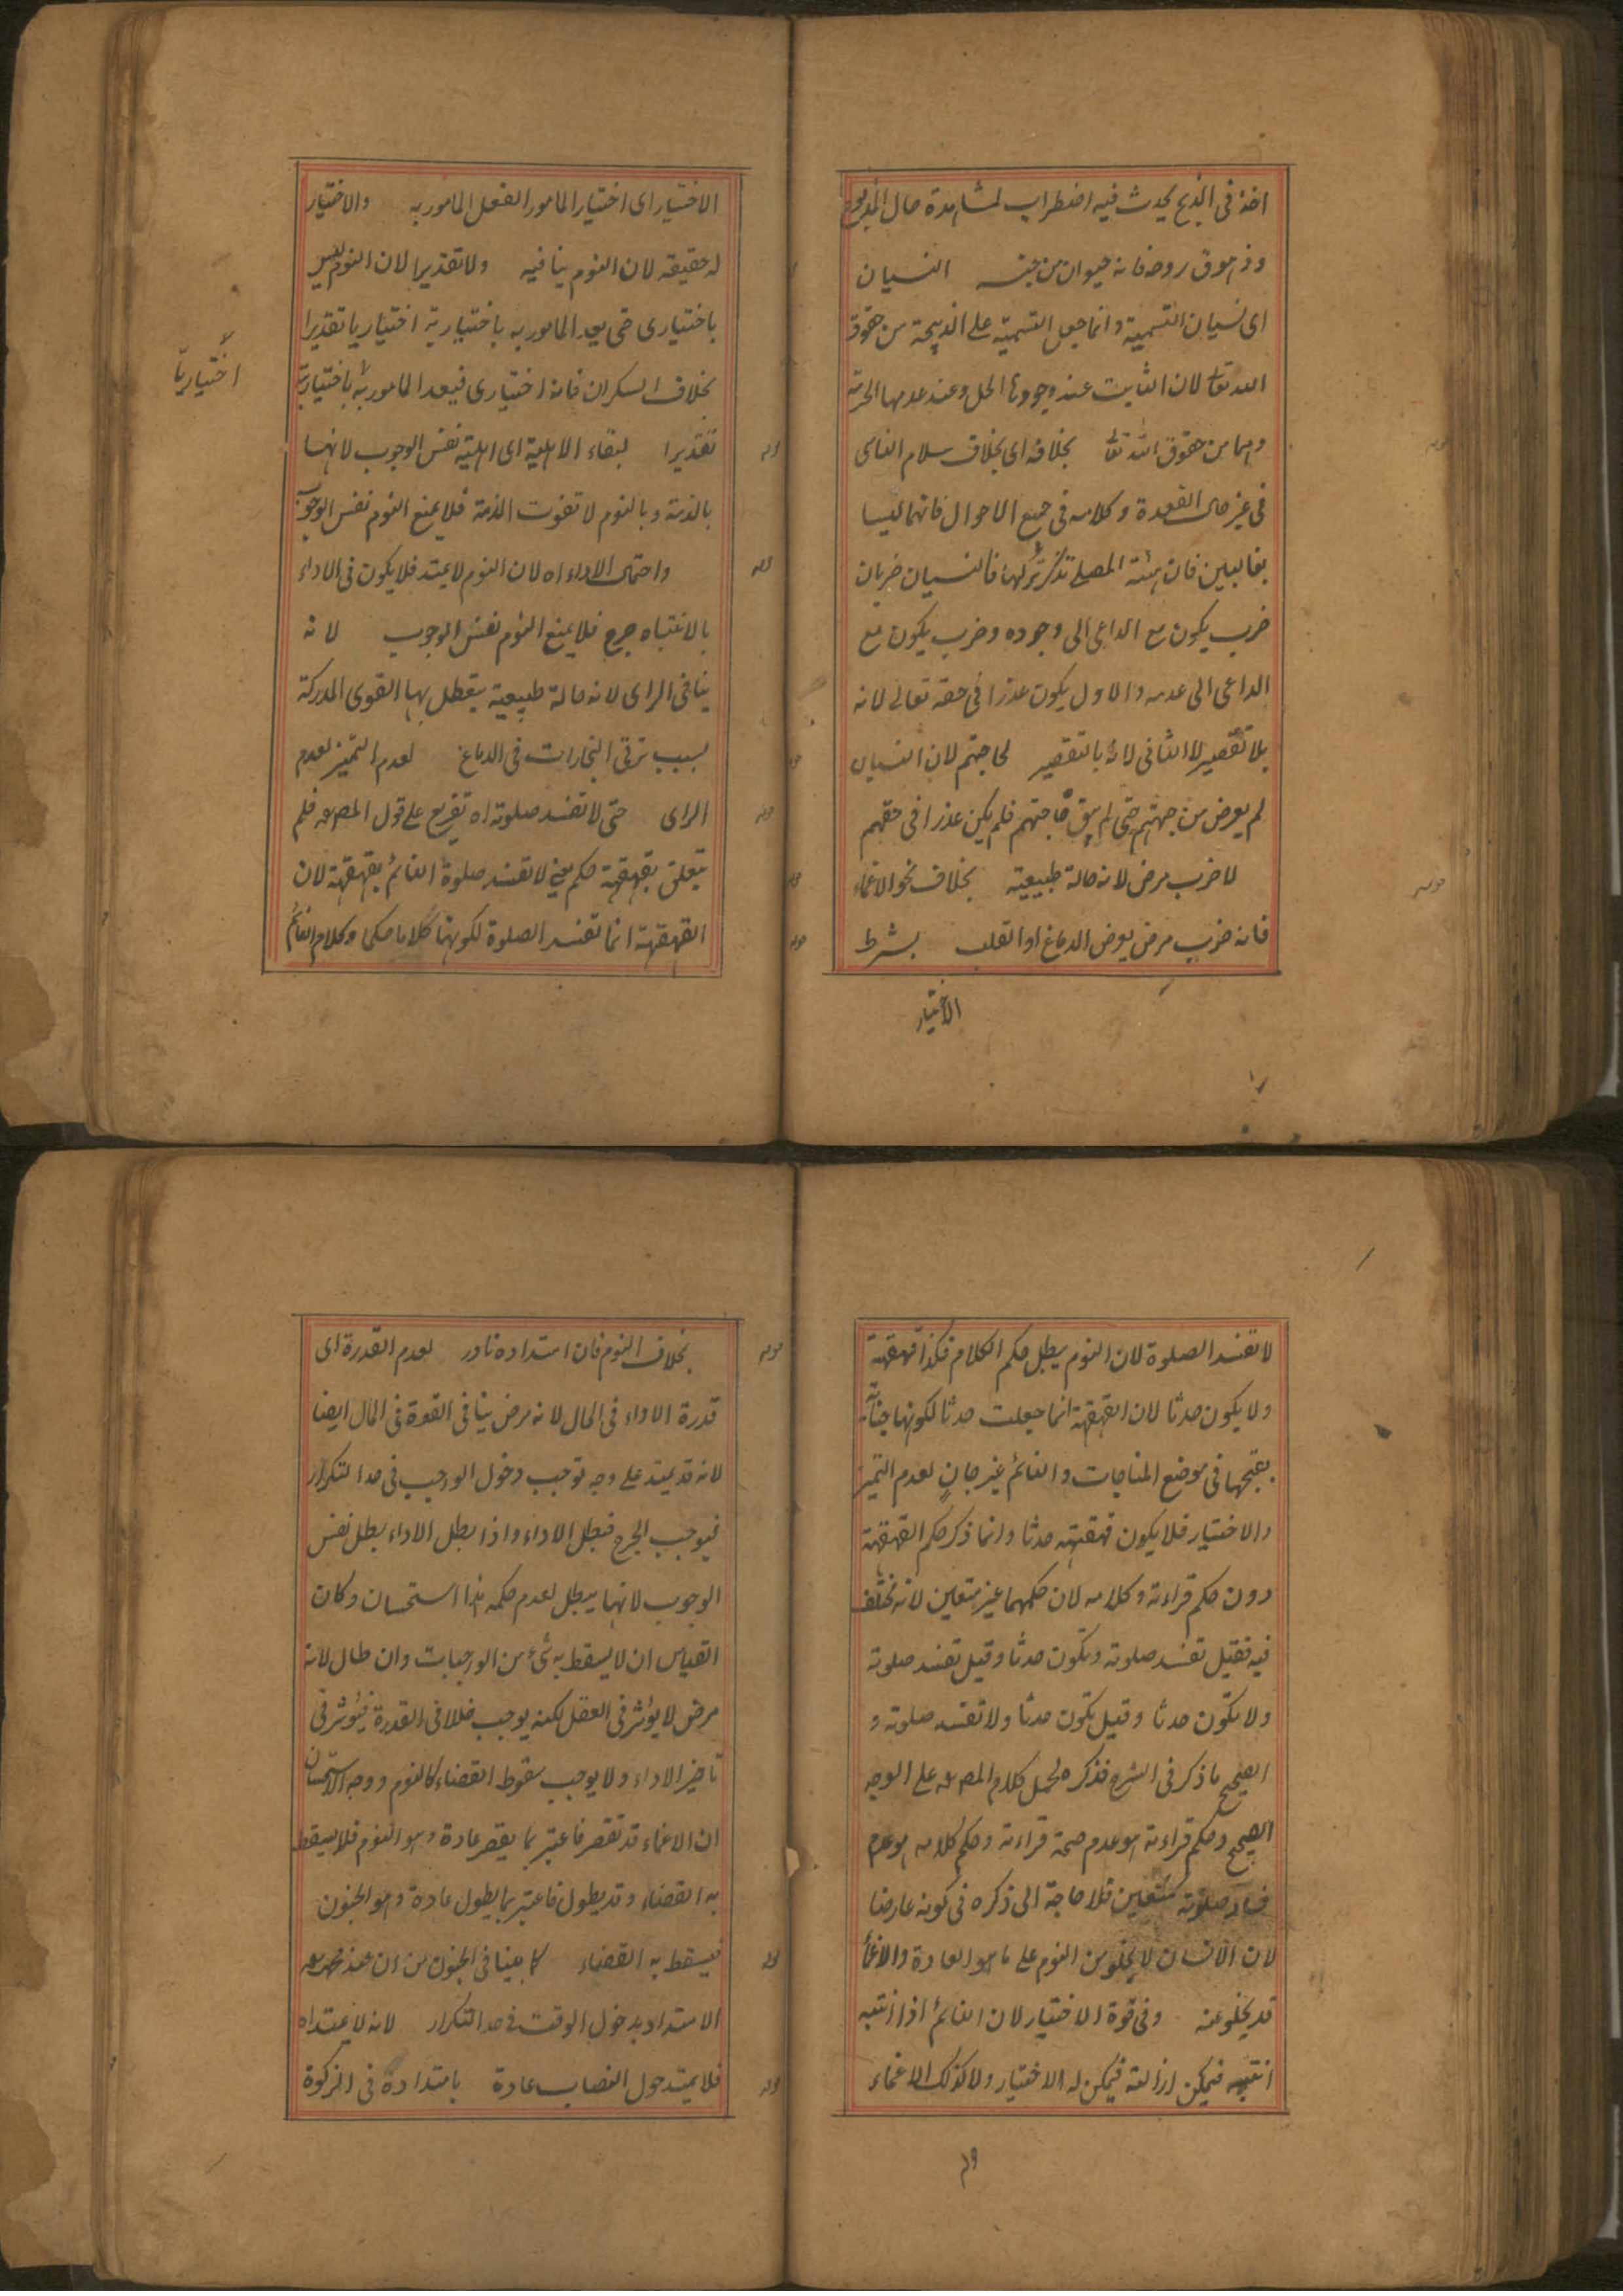 اخذ فى الذبح يحدث فيه اضطراب لمشاهدة حال المذبوح
وزهوق روحه فانه حيوان من جنسه النسيان
اى نسيان التسمية وانما جعل التسمية على الذبيحة من حقوق
الله تعالى لان الثابت عند وجودها الحل وعند عدمها الحرمة
وهما من حقوق الله تعالى بخلافه اى بخلاف سلام الناسى
فى غير حال القعدة وكلامه فى جميع الاحوال فانهما ليسا
بغالبين فان هيئة المصلى تذكرة لها فالنسيان ضربان
ضرب يكون مع الداعى الى وجوده وضرب يكون مع
الداعى الى عدمه والاول يكون عذرا فى حقه تعالى لانه
بلا تقصير لا الثانى لانه بالتقصير لحاجتهم لان النسيان
لم يعرض من جهتهم حتى لم يبق حاجتهم فلم يكن عذرا فى حقهم
لا ضرب مرض لانه حالة طبيعية بخلاف نحو الاغماء
فانه ضرب مرض يعرض الدماغ او القلب بشرط
الاختيار
الاختيار اى اختيار المامور الفعل المامور به والاختيار
له حقيقة لان النوم ينافيه ولا تقديرا لان النوم ليس
باختيارى حتى يعد المامور به باختيارية اختياريا تقديرا
اختياريّا
بخلاف السكران فانه اختيارى فيعد المامور به باختياريته
تقديرا لبقاء الاهلية اى اهلية نفس الوجوب لانها
بالذمة وبالنوم لا تفوت الذمة فلا يمنع النوم نفس الوجوب
واحتمال الاداء اه لان النوم لا يمتد فلا يكون فى الاداء
بالانتباه حرج فلا يمنع النوم نفس الوجوب لانه
ينافى الراى لانه حالة طبيعية يتعطل بها القوى المدركة
بسبب ترقى البخارات فى الدماغ لعدم التميز لعدم
الراى حتى لا تفسد صلوته اه تفريع على قول المص رحمه فلم
يتعلق بقهقهته حكم يعنى لا تفسد صلوة النائم بقهقهته لان
القهقهة انما تفسد الصلوة لكونها كلاما حكما وكلام النائم
لا تفسد الصلوة لان النوم يبطل حكم الكلام فكذا قهقهته
ولا يكون حدثا لان القهقهة انما جعلت حدثا لكونها جناية
بقبحها فى موضع المناجات والنائم غير جانٍ لعدم التميز
والاختيار فلا يكون قهقهته حدثا وانما ذكر حكم القهقهة
دون حكم قراءته وكلامه لان حكمهما غير متعين لانه مختلف
فيه فقيل تفسد صلوته وتكون حدثا وقيل تفسد صلوته
ولا تكون حدثا وقيل تكون حدثا ولا تفسد صلوته و
الصحيح ما ذكر فى الشرح فذكره لحمل كلام المص رحمه على الوجه
الصحيح وحكم قراءته هو عدم صحة قراءته وحكم كلامه هو عدم
فساد صلوته متعين فلا حاجة الى ذكره فى كونه عارضا
لان الانسان لا يخلو من النوم على ما هو العادة والاغماء
قد يخلو عنه وفى قوة الاختيار لان النائم اذا انتبه
انتبه فيمكن ازالته فيمكن له الاختيار ولا كذلك الاغماء
بخلاف النوم فان امتداده نادر لعدم القدرة اى
قدرة الاداء فى الحال لانه مرض ينافى القوة فى المال ايضا
لانه قد يمتد على وجه توجب دخول الواجب فى حد التكرار
فيوجب الحرج فبطل الاداء واذا بطل الاداء بطل نفس
الوجوب لانها يبطل لعدم حكمه هذا استحسان وكان
القياس ان لا يسقط به شئ من الواجبات وان طال لانه
مرض لا يؤثر فى العقل لكنه يوجب خللا فى القدرة فيؤثر فى
تاخير الاداء ولا يوجب سقوط القضاء كالنوم ووجه الاستحسان
ان الاغماء قد تقصر فاعتبر بما يقصر عادة وهو النوم فلا يسقط
به القضاء وقد يطول فاعتبر بما يطول عادة وهو الجنون
فيسقط به القضاء كما بينا فى الجنون من ان عند محمد رحمه
الامتداد بدخول الوقت فى حد التكرار لانه لا يمتد اه
فلا يمتد حول النصاب عادة بامتداده فى الزكوة